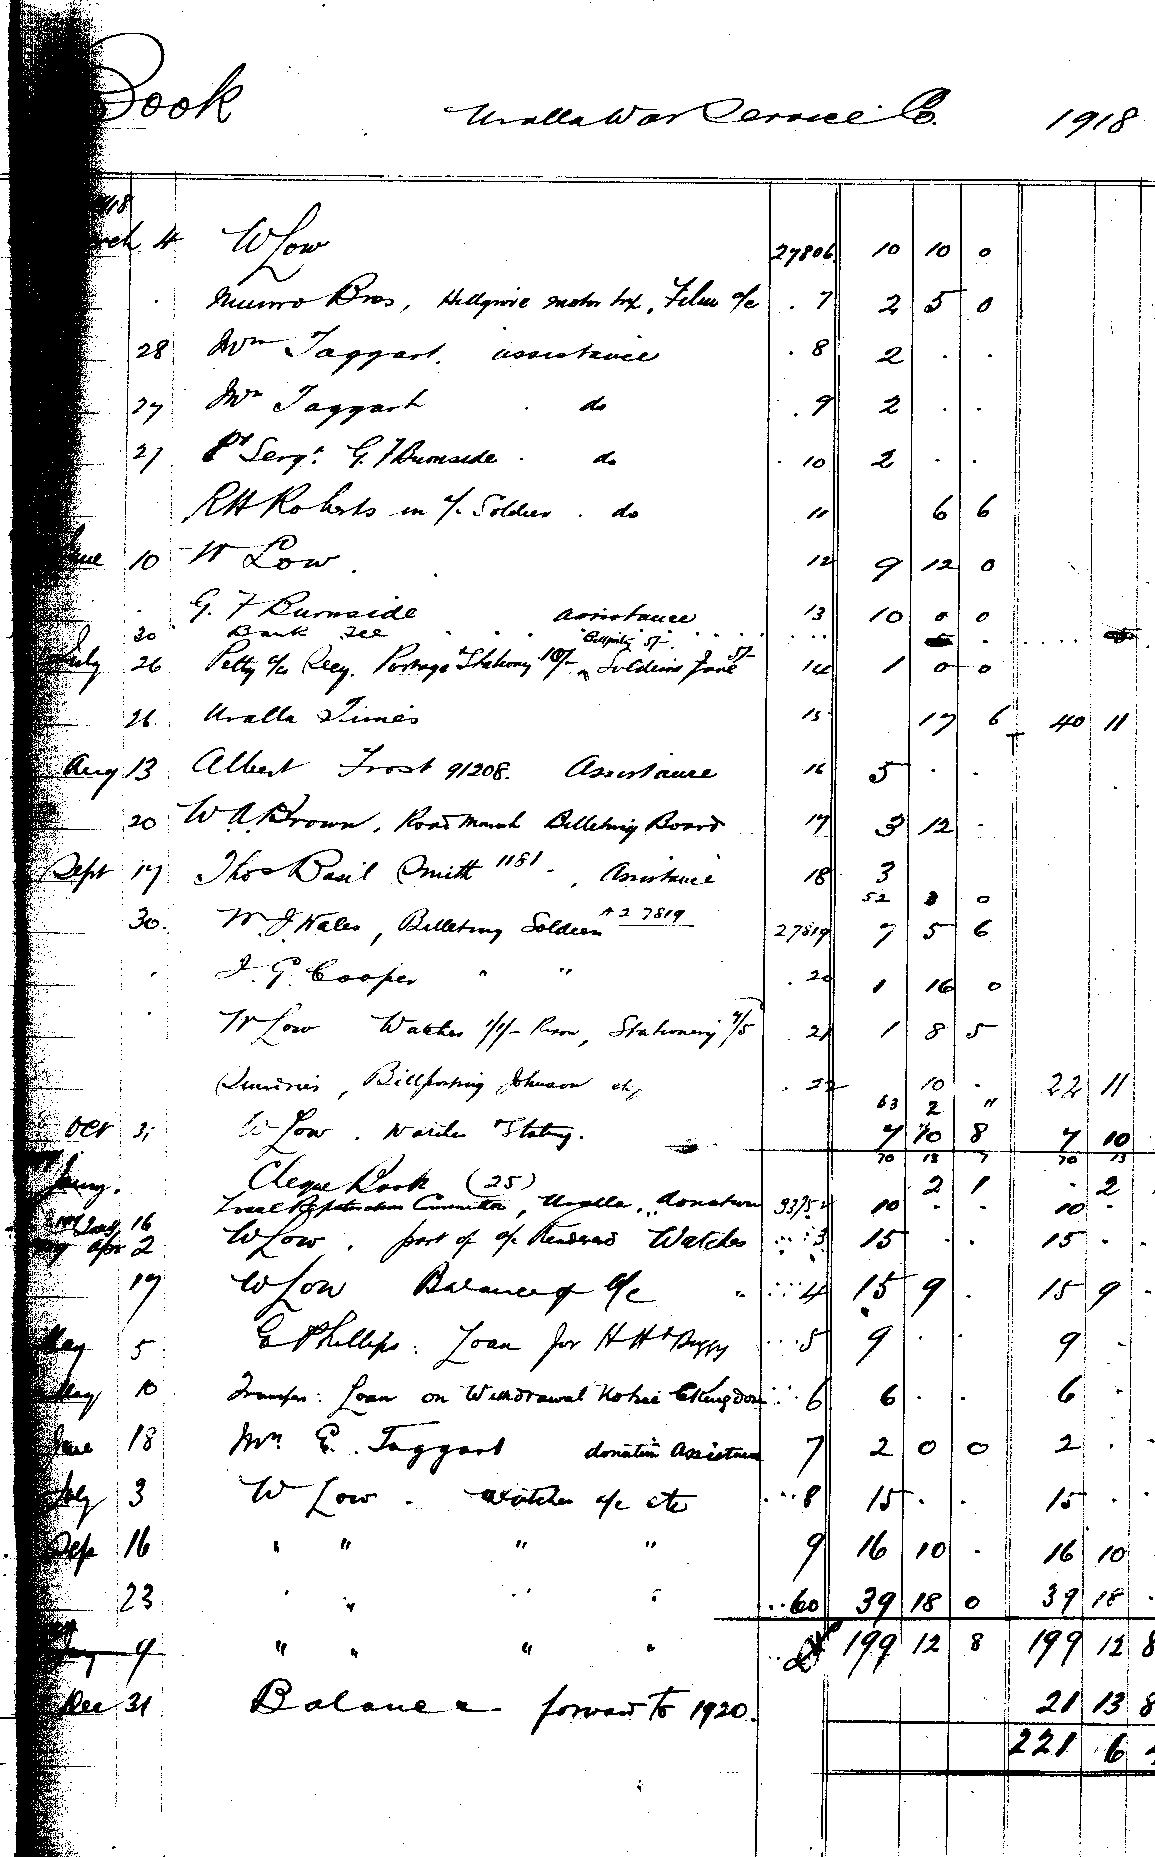 Book Uralla War Service Co. 1918
4 W Low 27806 10 10 0
Munro Bros, Hillgrove motor trip, Films a/c 7 2 5 0
28 Mrs Taggart. assistance 8 2 . .
27 Mrs Taggart do 9 2 . .
27 Sergt G. F Burnside do 10 2 . .
RH Roberts in a/c Soldier . do 11 6 6
10 W Low 12 9 12 0
G. F Burnside assistance 13 10 0 0
30 Bank Fee
July 26 Petty a/c Postage Stationy 10/- Soldiers 5/- 14 1 0 0
26 Uralla Times 15 17 6 40 11
Aug 13 Albert Frost 91208. Assistance 16 5 . .
20 W A Brown, Road March Billeting Board 17 3 12 .
Sept 17 Thos Basil Smith 1181. Assistance 18 3
52 0
30. W. J. Hales, Billeting Soldiers 27819 27819 7 5 6
J. G. Cooper " " 20 1 16 0
W Low Watches Stationery 7/5 21 1 8 5
Sundries, Billposting Johnson etc 22 10 . 22 11
63 2 "
Oct 31 W Low . 7 10 8 7 10
70 13 7 70 13
Cheque Book (25) 2 1 2
Local Repatriation Committee, Uralla, donation 10 . . 10 .
16
Apr 2 W Low . part of a/c Rendered Watches 3 15 . . 15 . .
17 W Low Balance of a/c " 4 15 9 . 15 9 .
May 5 E Phillips. Loan for 5 9 . . 9 .
May 10 Transfer: Loan on Withdrawal Notice 6 6 . . 6 .
June 18 Mrs E. Taggart donation Assistance 7 2 0 0 2 .
July 3 W Low . Watches a/c etc 8 15 . . 15 . .
Sep 16 " " " " 9 16 10 . 16 10
23 " " " " 60 39 18 0 39 18 .
9 " " " " 199 12 8 199 12 8
Dec 31 Balance forward to 1920. 21 13 8
221 6